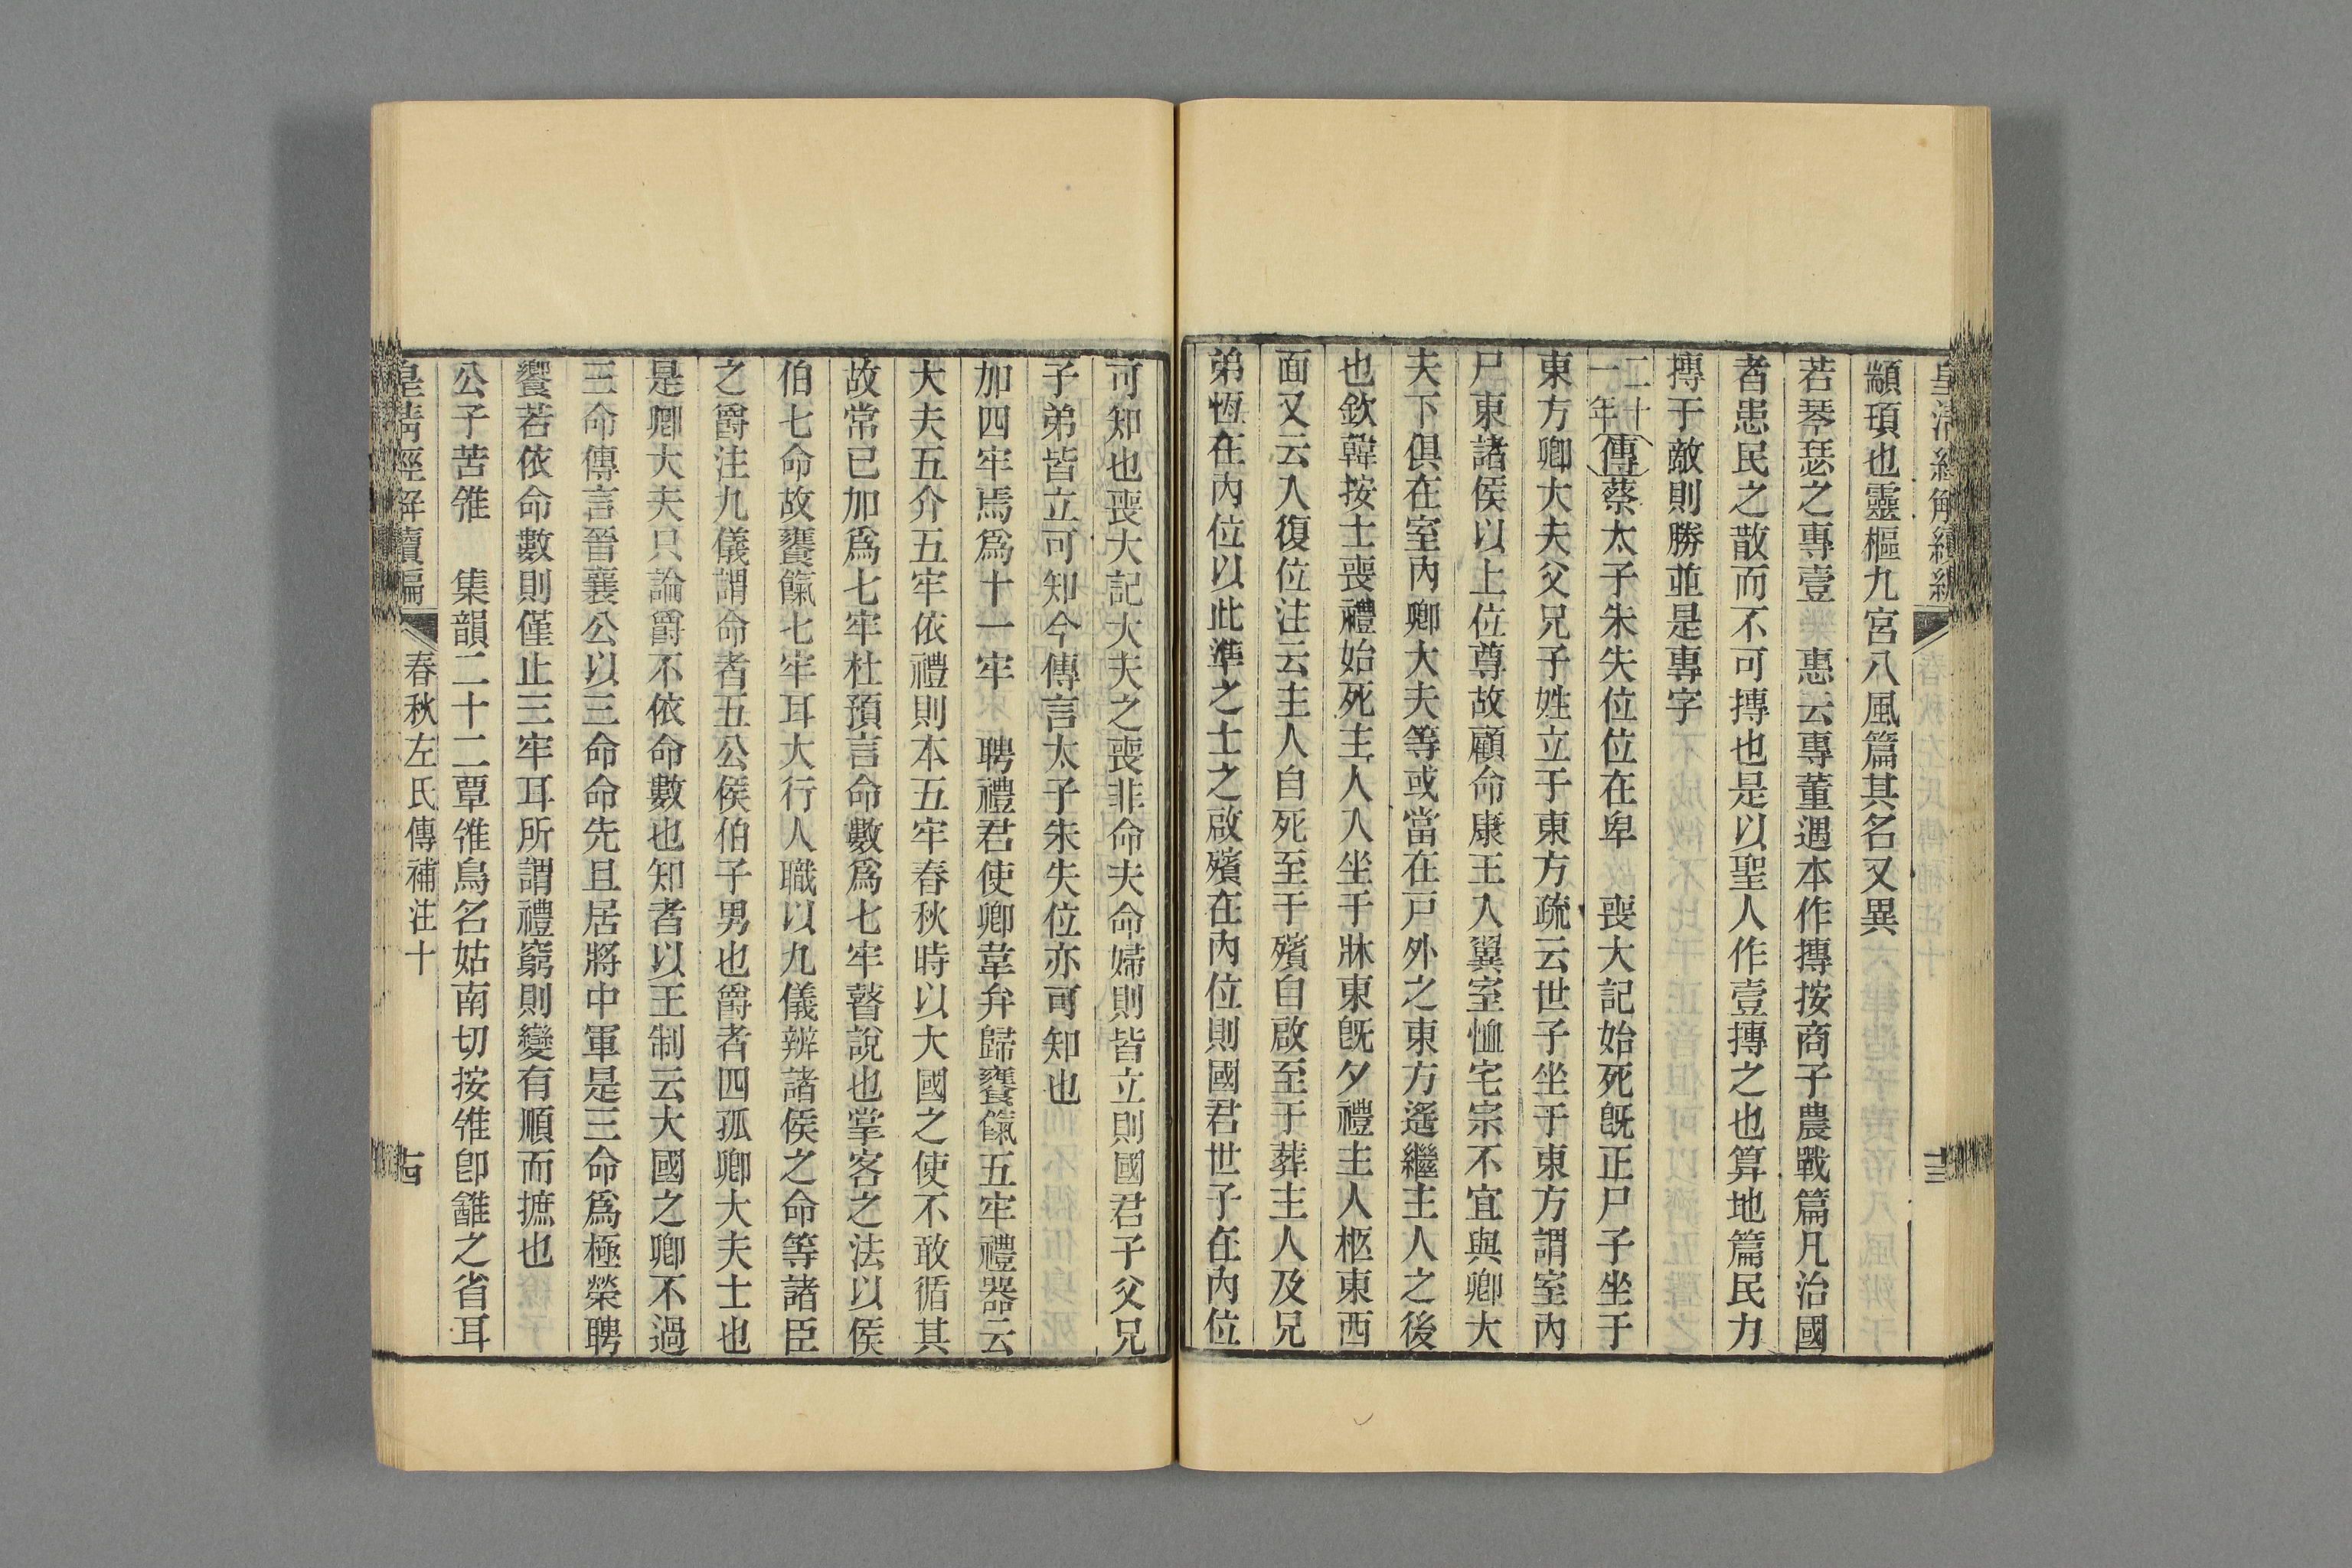 皇清經解續編
十三
顓頊也靈樞九宮八風篇其名又異
若琴瑟之專壹 惠云專董遇本作摶按商子農戰篇凡治國
者患民之散而不可摶也是以聖人作壹摶之也算地篇民力
摶于敵則勝並是專字
二十一年 傳 蔡太子朱失位位在卑 喪大記始死旣正尸子坐于
東方卿大夫父兄子姓立于東方疏云世子坐于東方謂室內
尸東諸侯以上位尊故顧命康王入翼室恤宅宗不宜與卿大
夫下俱在室內卿大夫等或當在戸外之東方遙繼主人之後
也欽韓按士喪禮始死主人入坐于牀東旣夕禮主人柩東西
面又云入復位注云主人自死至于殯自啟至于葬主人及兄
弟恆在內位以此準之士之啟殯在內位則國君世子在內位
可知也喪大記大夫之喪非命夫命婦則皆立則國君子父兄
子弟皆立可知今傳言太子朱失位亦可知也
加四牢焉爲十一牢 聘禮君使卿韋弁歸饔餼五牢禮器云
大夫五介五牢依禮則本五牢春秋時以大國之使不敢循其
故常已加爲七牢杜預言命數爲七牢瞽說也掌客之法以侯
伯七命故饔餼七牢耳大行人職以九儀辨諸侯之命等諸臣
之爵注九儀謂命者五公侯伯子男也爵者四孤卿大夫士也
是卿大夫只論爵不依命數也知者以王制云大國之卿不過
三命傳言晉襄公以三命命先且居將中軍是三命爲極榮聘
饗若依命數則僅止三牢耳所謂禮窮則變有順而摭也
公子苦雂 集韻二十二覃雂鳥名姑南切按雂卽䧹之省耳
皇清經解續編
春秋左氏傳補注十
十四